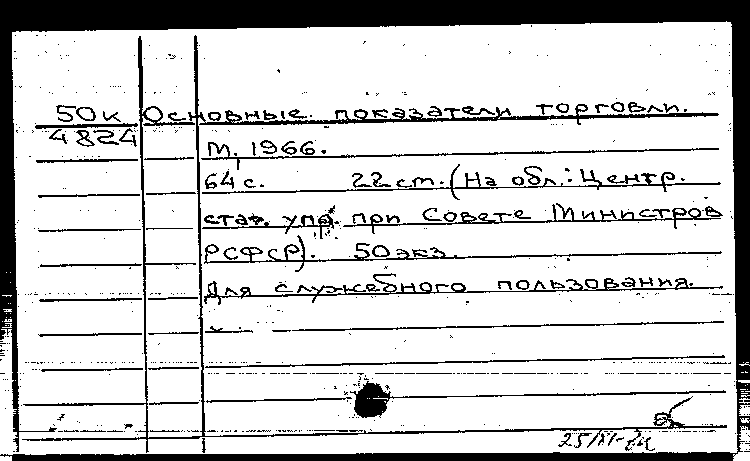 50к Основные показатели торговли.
4824
М, 1966.
64 с. 22 см. (На обл.: Центр.
стат. упр. при Совете Министров
РСФСР). 50 экз.
Для служебного пользования.